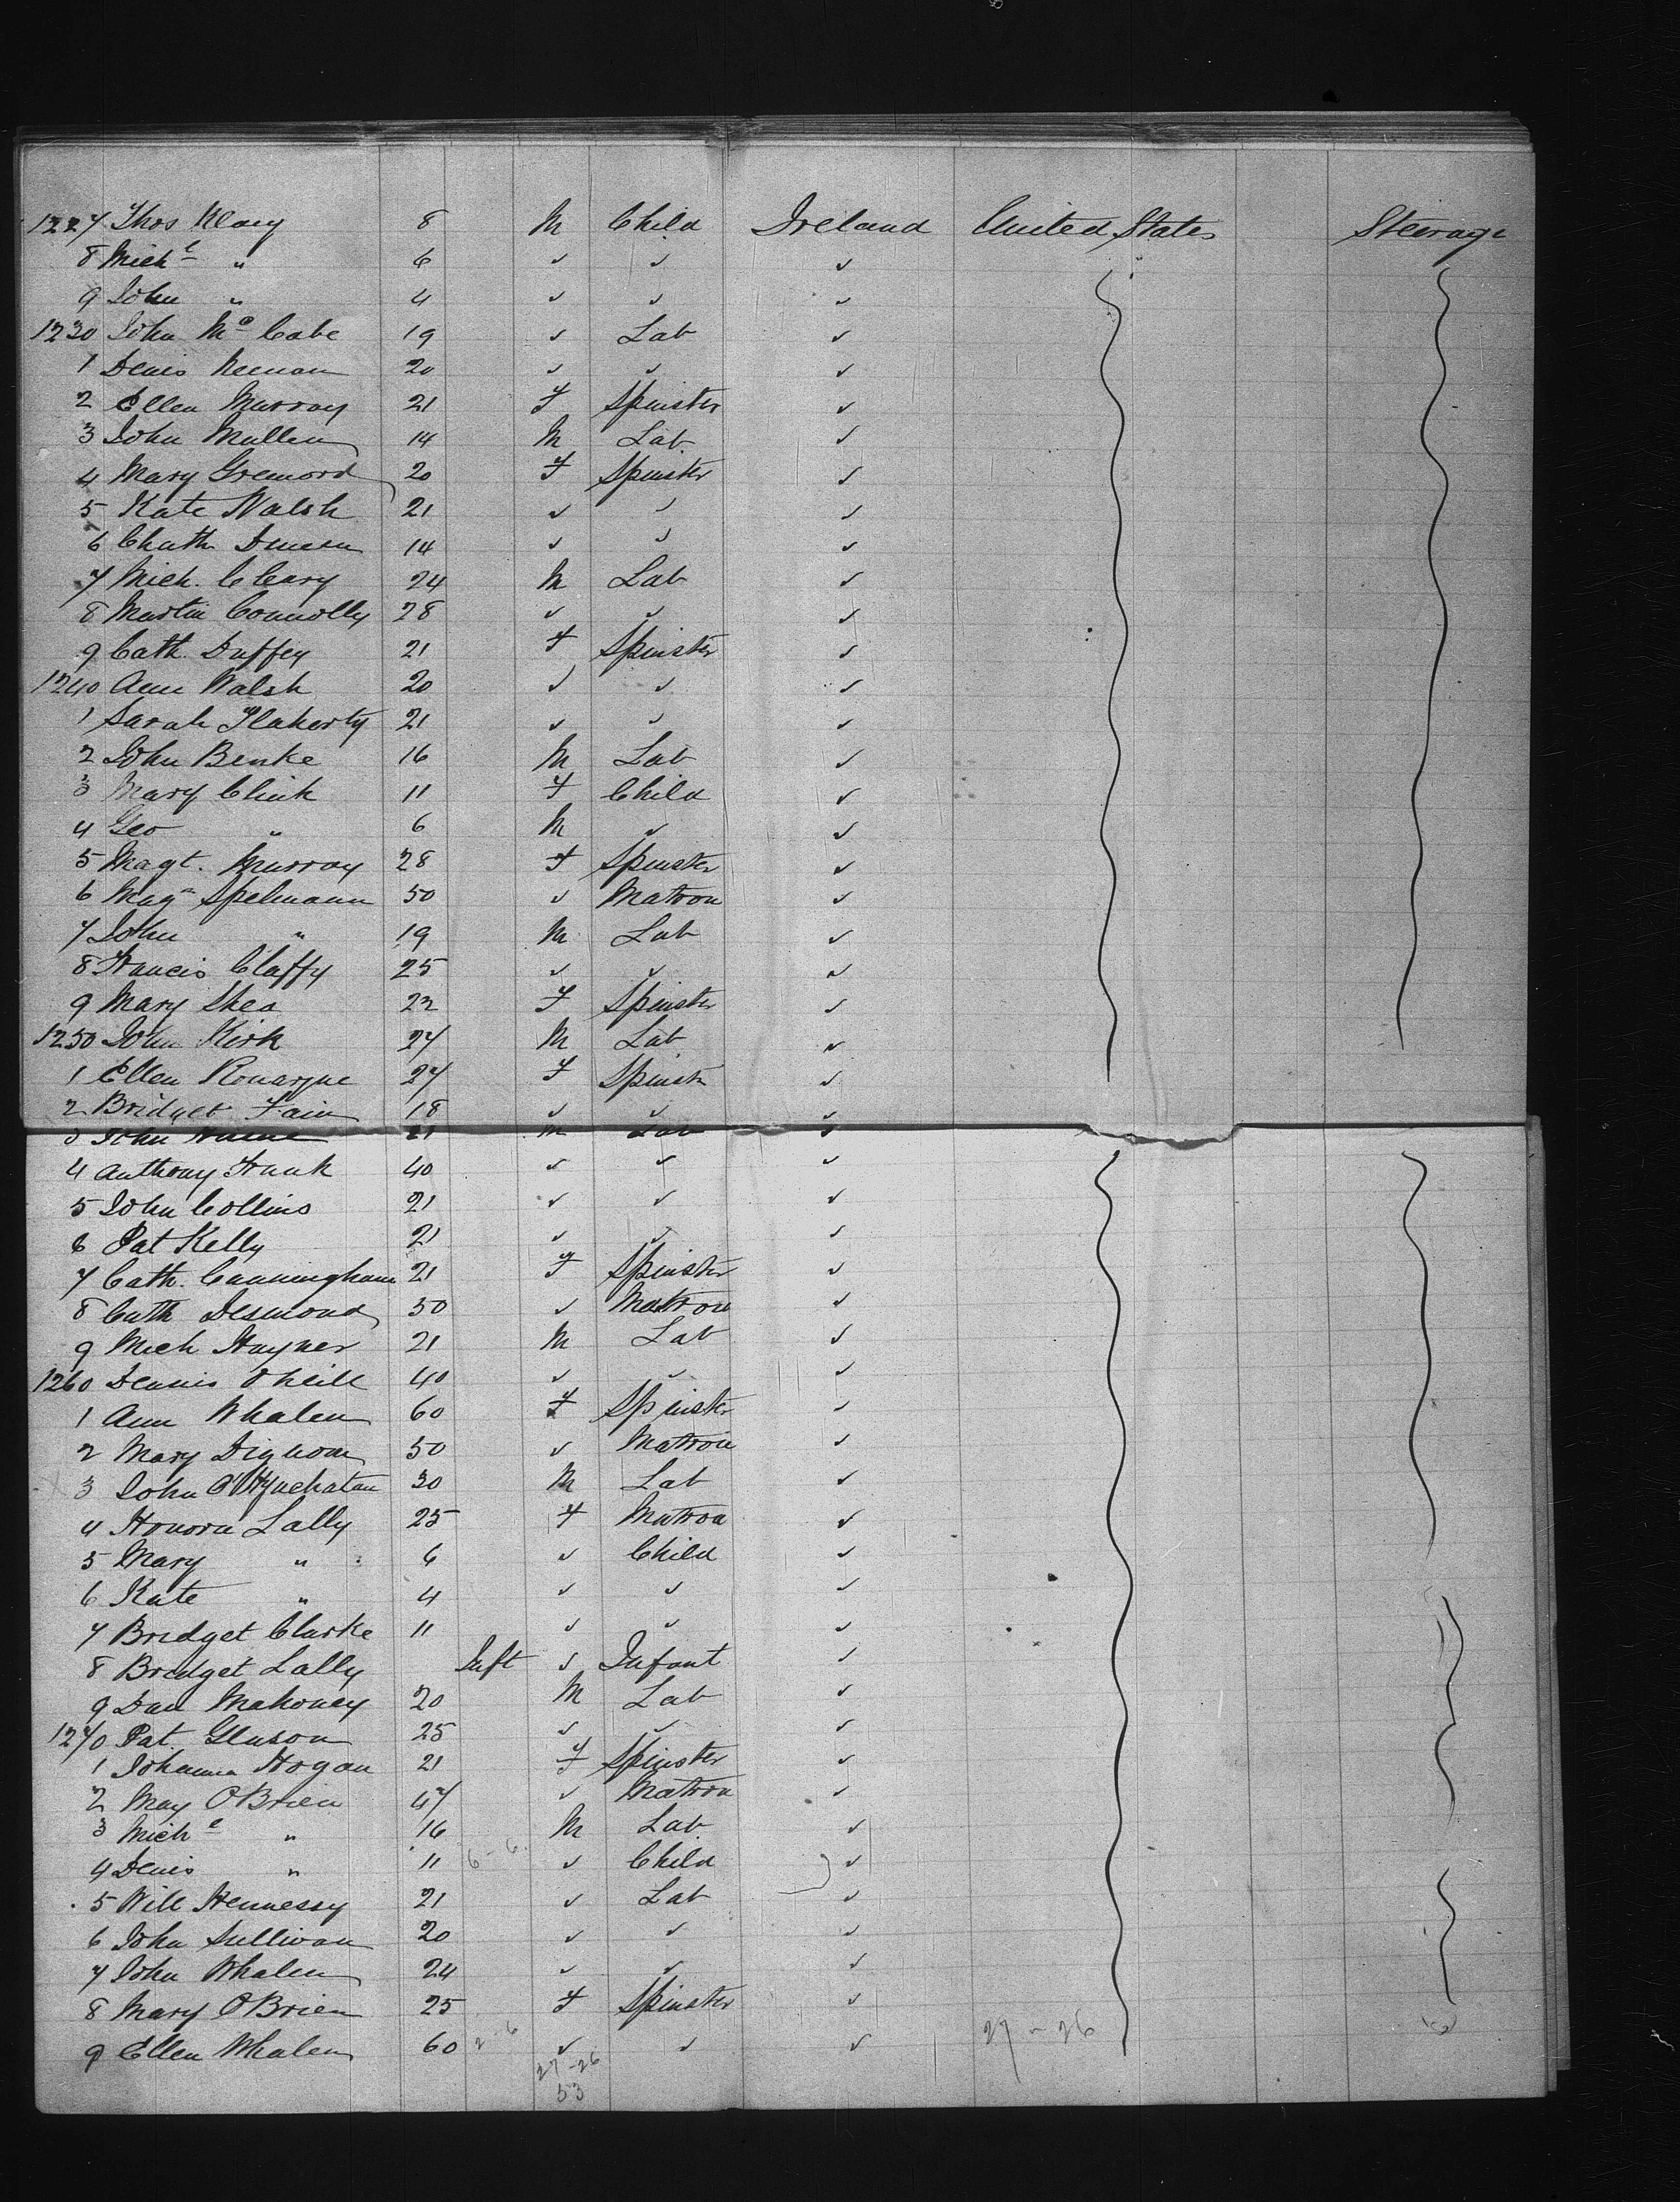 1227 Thos Klary 8 M Child Ireland United States Steerage
8 Michl " 6 " " "
9 John " 4 " " "
1230 John Mc Cabe 19 " Lab "
1 Denis Keenan 20 " " "
2 Ellen Murray 21 F Spinster "
3 John Mullen 14 M Lab "
4 Mary 20 F Spinster "
5 Kate Walsh 21 " " "
6 14 " " "
7 Mich. Cleary 24 M Lab "
8 Martin Connolly 28 " " "
9 Cath. Duffey 21 F Spinster "
1240 Ann Walsh 20 " " "
1 Sarah Flaherty 21 " " "
2 John Benke 16 M Lab "
3 Mary Clink 11 F Child "
4 Geo " 6 M " "
5 Magt. Murray 28 F Spinster "
6 Mag Spelmann 50 " Matron "
7 John " 19 M Lab "
8 Francis Claffy 25 " " "
9 Mary Shea 22 F Spinster "
1250 John Kirk 27 M Lab "
1 Ellen 27 F Spinstr "
2 Bridget Fain 18 " " "
3 John 21 M Lab "
4 Anthony Frunk 40 " " "
5 John Collins 21 " " "
6 Pat Kelly 21 " " "
7 Cath. Cunningham 21 F Spinster "
8 Cath Desmond 50 " Matron "
9 Mich Hayner 21 M Lab "
1260 Dennis O'Neill 40 " " "
1 Ann Whalen 60 F Spinster "
2 Mary Dignom 50 " Matron "
3 John 30 M Lab "
4 Honora Lally 25 F Matron "
5 Mary " 6 " Child "
6 Kate " 4 " " "
7 Bridget Clarke 11 " " "
8 Bridget Lally Inft " Infant "
9 Dan Mahoney 20 M Lab "
1270 Pat. Gleason 25 " " "
1 Johanna Hogan 21 F Spinster "
2 May O'Brien 47 " Matron "
3 Michl " 16 M Lab "
4 Denis " 11 6-6 " Child "
5 Will Hennessy 21 " Lab "
6 John Sullivan 20 " " "
7 John Whalen 24 " " "
8 Mary O'Brien 25 F Spinster "
9 Ellen Whalen 60 2-6 " " " 27-26
27-26
53